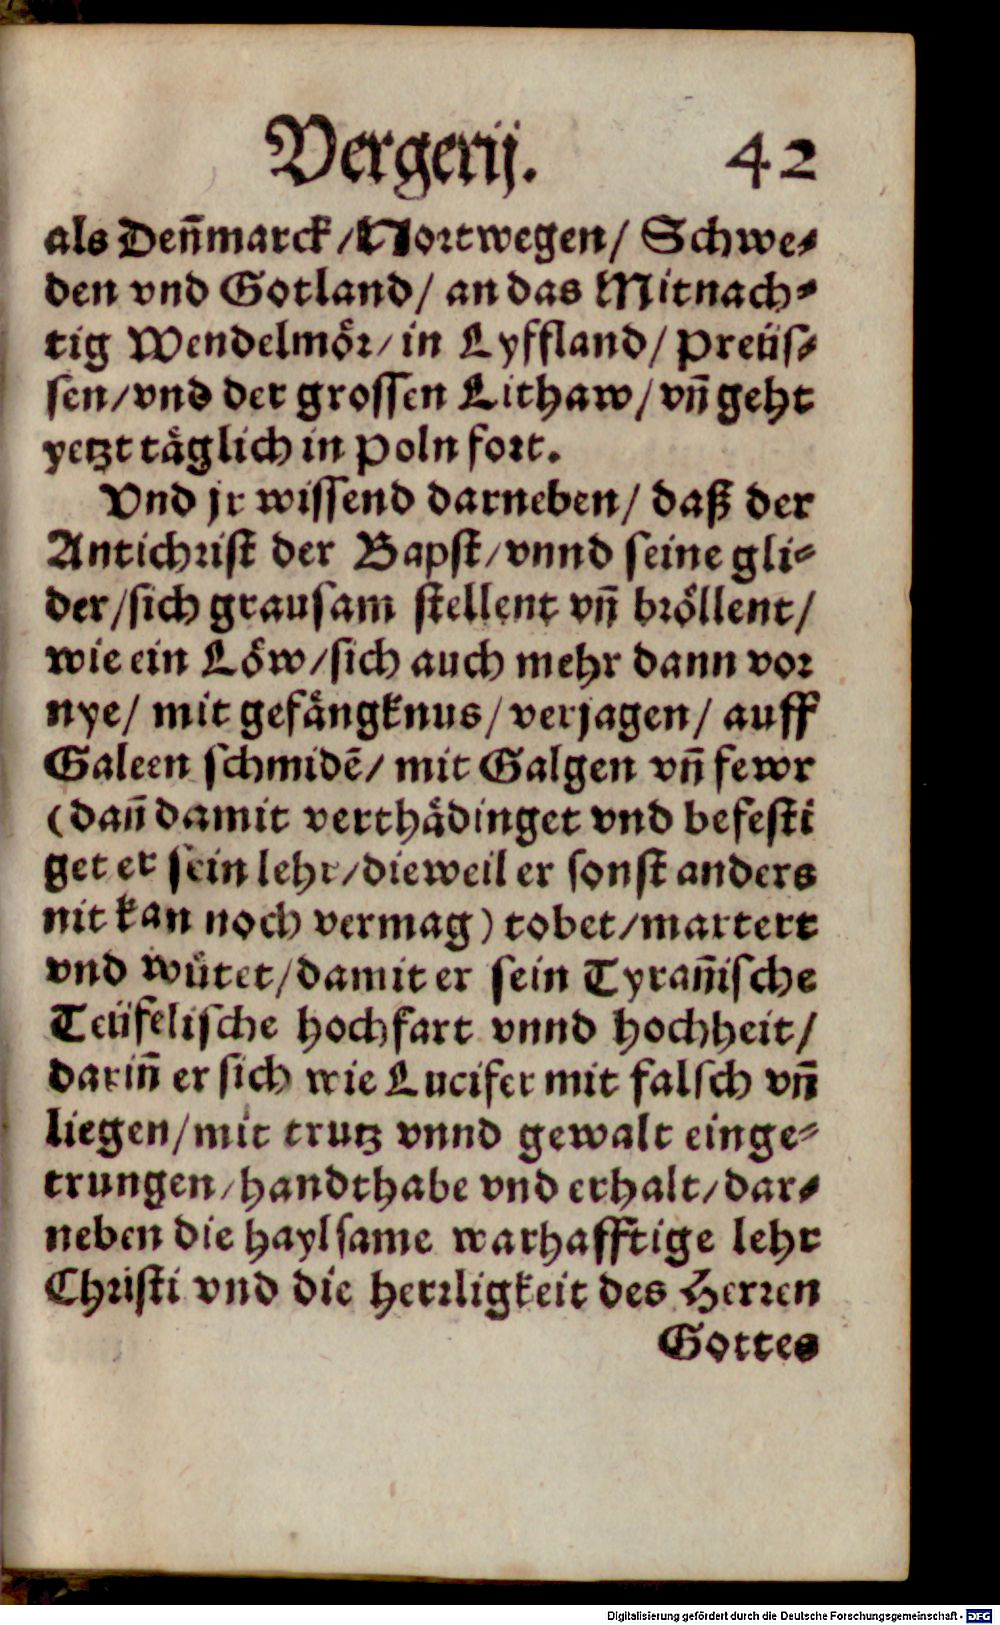 Vergerij. 42
als Deñmarck / Nortwegen / Schwe⸗
den vnd Gotland / an das Mitnach⸗
tig Wendelmoͤr / in Lyffland / Preüs⸗
sen / vnd der grossen Lithaw / vñ geht
yetzt taͤglich in Poln fort.
Vnd jr wissend darneben / daß der
Antichrist der Bapst / vnnd seine gli⸗
der / sich grausam stellent vñ broͤllent /
wie ein Loͤw / sich auch mehr dann vor
nye / mit gefaͤngknus / verjagen / auff
Galeen schmidē / mit Galgen vñ fewr
(dañ damit verthaͤdinget vnd befesti
get er sein lehr / dieweil er sonst anders
nit kan noch vermag) tobet / martert
vnd wuͤtet / damit er sein Tyrañische
Teüfelische hochfart vnnd hochheit /
dariñ er sich wie Lucifer mit falsch vñ
liegen / mit trutz vnnd gewalt einge⸗
trungen / handthabe vnd erhalt / dar⸗
neben die haylsame warhafftige lehr
Christi vnd die herrligkeit des Herren
Gottes
Digitalisierung gefördert durch die Deutsche Forschungsgemeinschaft - DFG